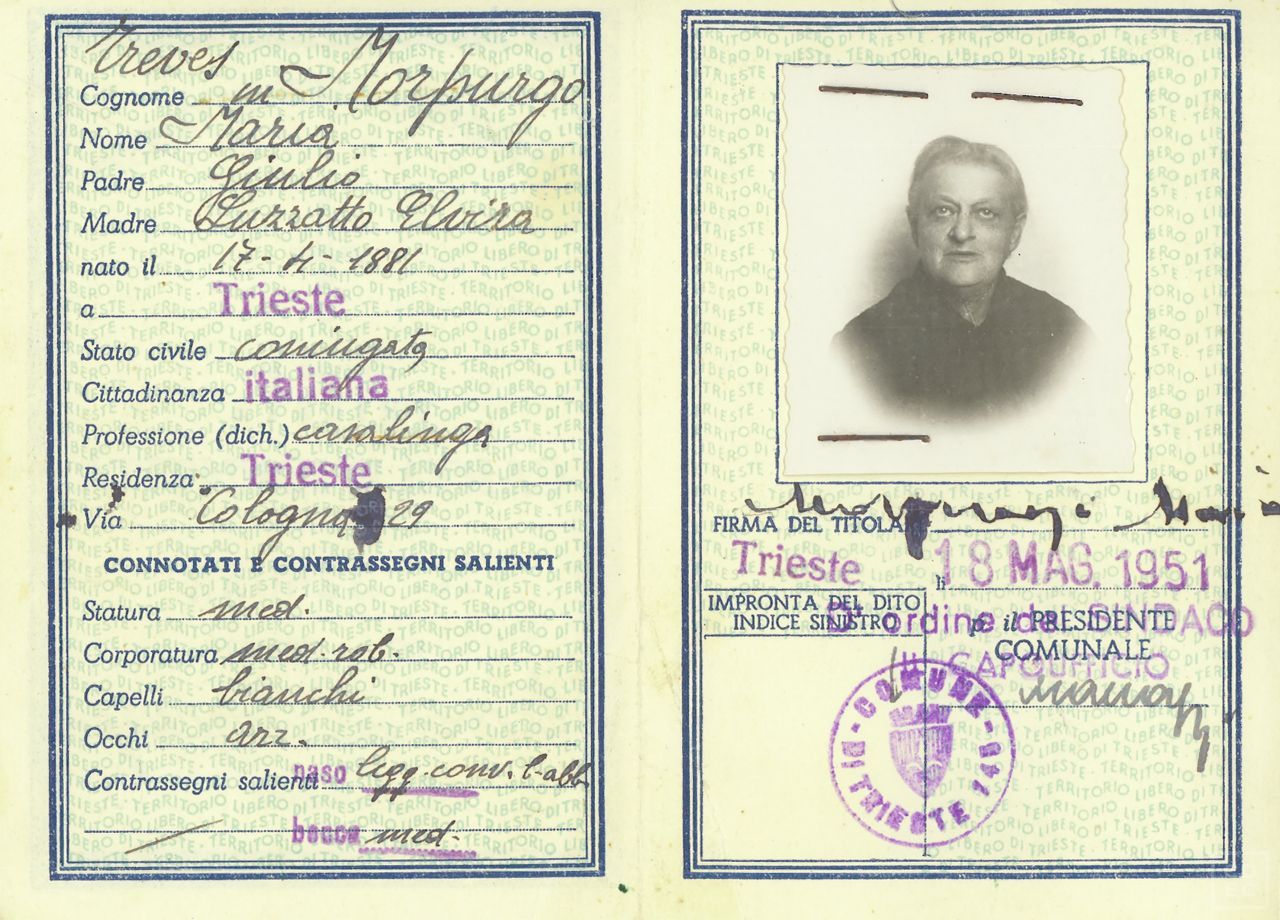 Treves
Cognome in Morpurgo
Nome Maria
Padre Giulio
Madre Luzzatto Elvira
nato il 17-4-1881
a Trieste
Stato civile coniugata
Cittadinanza italiana
Professione (dich.) casalinga
Residenza Trieste
Via Cologna 29
CONNOTATI E CONTRASSEGNI SALIENTI
Statura med.
Corporatura med. rob.
Capelli bianchi
Occhi azz.
Contrassegni salienti naso legg. conv. l-abb
bocca med.
Maria
FIRMA DEL TITOLA
Trieste li 18 MAG. 1951
IMPRONTA DEL DITO
INDICE SINISTRO
D'ordine del SINDACO
p. il PRESIDENTE
COMUNALE
IL CAPOUFFICIO
COMUNE DI TRIESTE